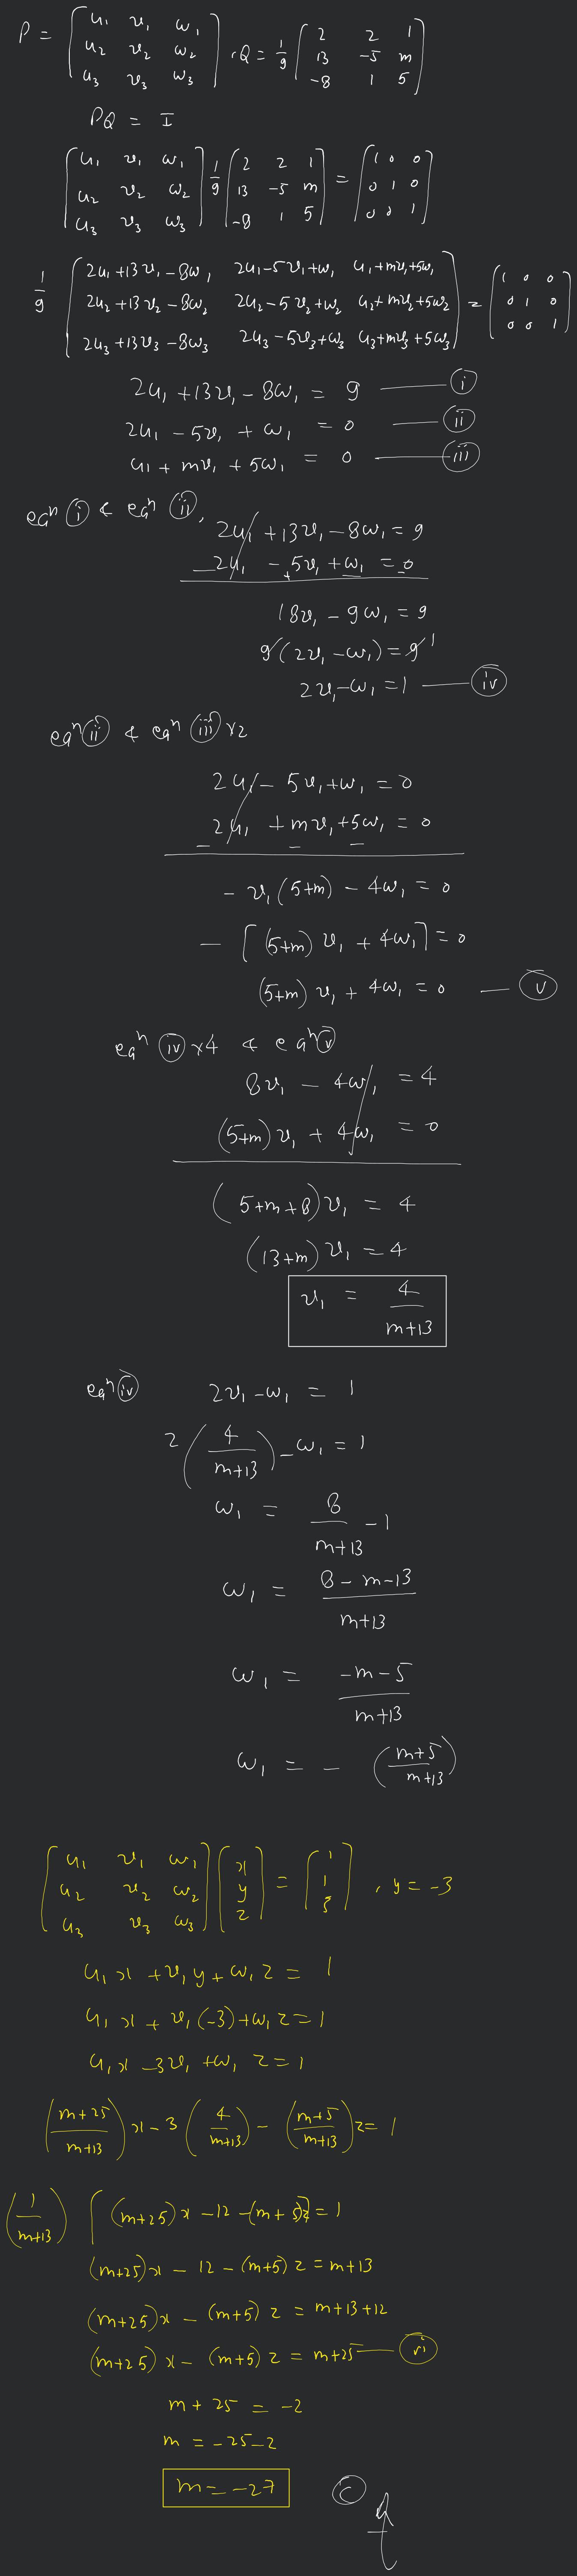 P = [u₁ v₁ ω₁; u₂ v₂ ω₂; u₃ v₃ ω₃], Q = 1/9 [2 2 1; 13 -5 m; -8 1 5]
PQ = I
[u₁ v₁ ω₁; u₂ v₂ ω₂; u₃ v₃ ω₃] 1/9 [2 2 1; 13 -5 m; -8 1 5] = [1 0 0; 0 1 0; 0 0 1]
1/9 [2u₁+13v₁-8ω₁ 2u₁-5v₁+ω₁ u₁+mv₁+5ω₁; 2u₂+13v₂-8ω₂ 2u₂-5v₂+ω₂ u₂+mv₂+5ω₂; 2u₃+13v₃-8ω₃ 2u₃-5v₃+ω₃ u₃+mv₃+5ω₃] = [1 0 0; 0 1 0; 0 0 1]
2u₁ + 13v₁ - 8ω₁ = 9 — (i)
2u₁ - 5v₁ + ω₁ = 0 — (ii)
u₁ + mv₁ + 5ω₁ = 0 — (iii)
eqⁿ (i) & eqⁿ (ii),
2u₁ + 13v₁ - 8ω₁ = 9
2u₁ - 5v₁ + ω₁ = 0
18v₁ - 9ω₁ = 9
9(2v₁ - ω₁) = 9 1
2v₁ - ω₁ = 1 — (iv)
eqⁿ (ii) & eqⁿ (iii) x2
2u₁ - 5v₁ + ω₁ = 0
2u₁ + mv₁ + 5ω₁ = 0
- v₁(5+m) - 4ω₁ = 0
- [(5+m) v₁ + 4ω₁] = 0
(5+m) v₁ + 4ω₁ = 0 — (v)
eqⁿ (iv) x4 & eqⁿ (v)
8v₁ - 4ω₁ = 4
(5+m) v₁ + 4ω₁ = 0
(5+m+8) v₁ = 4
(13+m) v₁ = 4
v₁ = 4/(m+13)
eqⁿ (iv) 2v₁ - ω₁ = 1
2(4/(m+13)) - ω₁ = 1
ω₁ = 8/(m+13) - 1
ω₁ = (8-m-13)/(m+13)
ω₁ = (-m-5)/(m+13)
ω₁ = - ((m+5)/(m+13))
[u₁ v₁ ω₁; u₂ v₂ ω₂; u₃ v₃ ω₃] [x; y; z] = [1; 1; 3], y = -3
u₁x + v₁y + ω₁z = 1
u₁x + v₁(-3) + ω₁z = 1
u₁x - 3v₁ + ω₁z = 1
((m+25)/(m+13))x - 3(4/(m+13)) - ((m+5)/(m+13))z = 1
(1/(m+13)) [(m+25)x - 12 - (m+5)z] = 1
(m+25)x - 12 - (m+5)z = m+13
(m+25)x - (m+5)z = m+13+12
(m+25)x - (m+5)z = m+25 — (vi)
m + 25 = -2
m = -25-2
m = -27 (c)